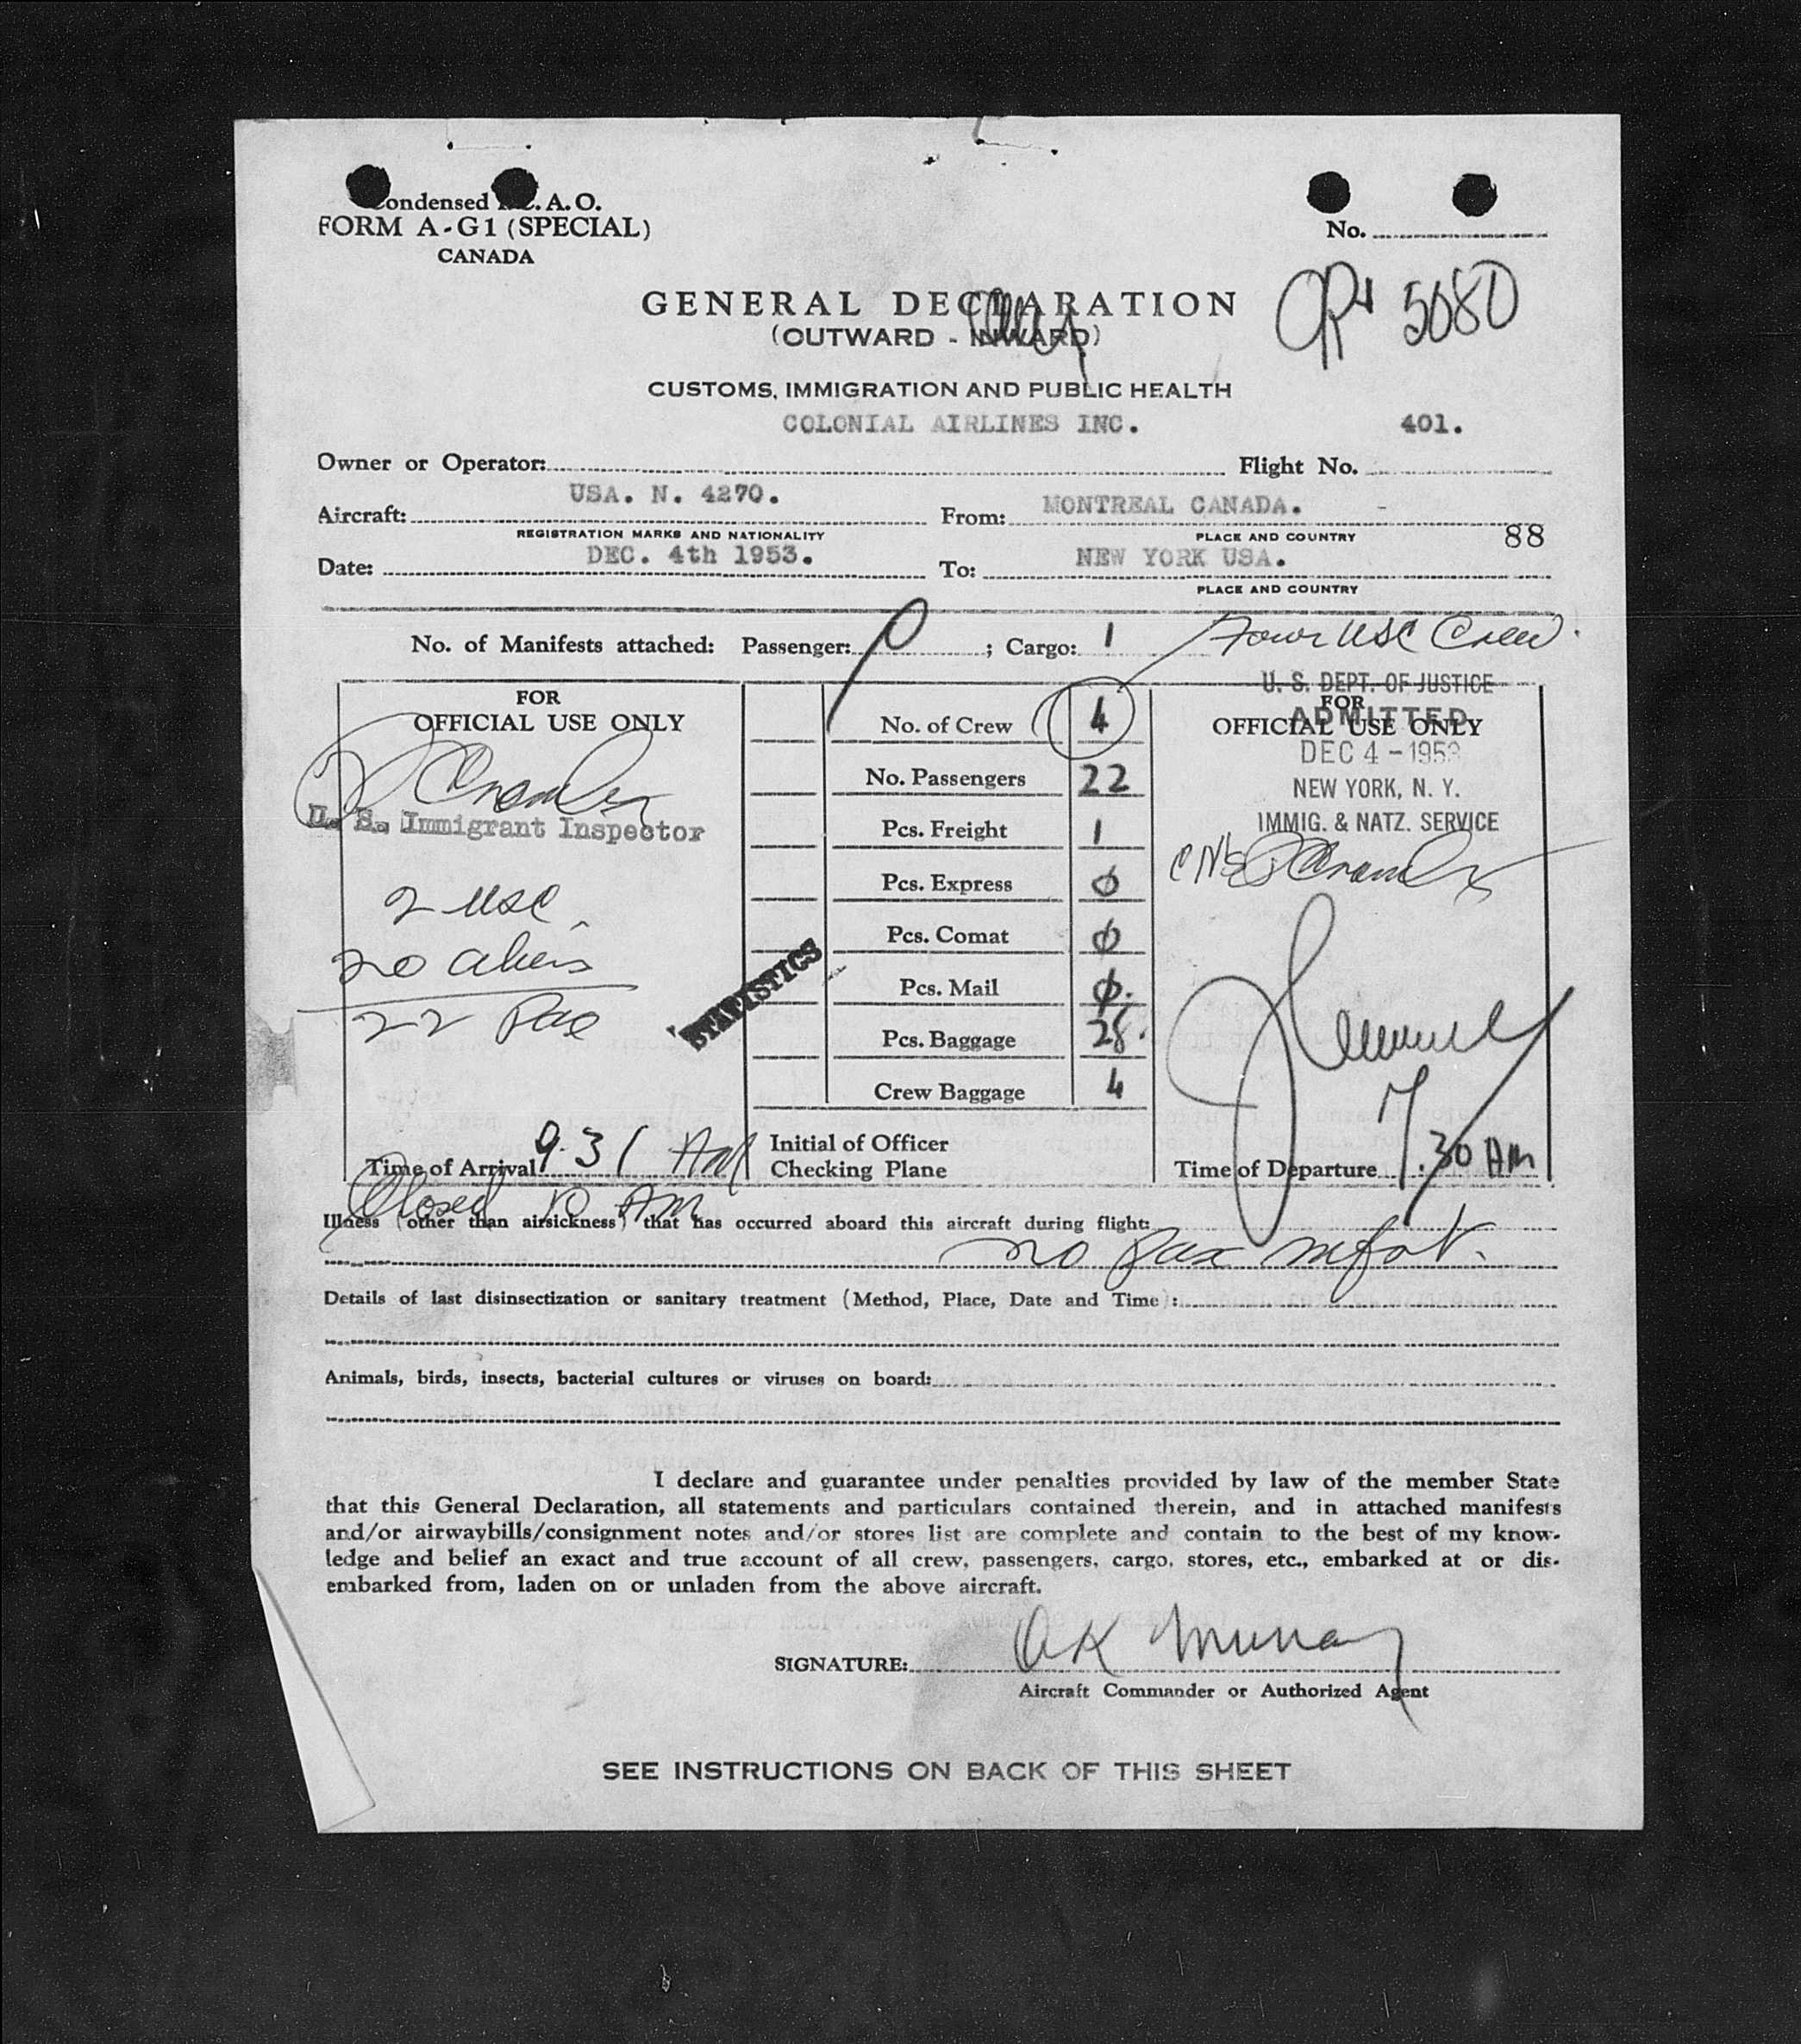 Condensed I.C.A.O.
FORM A-G1 (SPECIAL)
CANADA
No.
GENERAL DECLARATION
(OUTWARD - INWARD)
5080
CUSTOMS, IMMIGRATION AND PUBLIC HEALTH
COLONIAL AIRLINES INC. 401.
Owner or Operator: Flight No.
USA. N. 4270. MONTREAL CANADA.
Aircraft: From:
REGISTRATION MARKS AND NATIONALITY PLACE AND COUNTRY 88
DEC. 4th 1953. NEW YORK USA.
Date: To:
PLACE AND COUNTRY
No. of Manifests attached: Passenger: 0 ; Cargo: 1 Four USC Crew.
U. S. DEPT. OF JUSTICE
FOR
OFFICIAL USE ONLY
No. of Crew 4
FOR
OFFICIAL USE ONLY
ADMITTED
DEC 4 - 1953
NEW YORK, N. Y.
IMMIG. & NATZ. SERVICE
No. Passengers 22
U. S. Immigrant Inspector
Pcs. Freight 1
2 USC
20 aliens
22 Pax
Pcs. Express 0
Pcs. Comat 0
STATISTICS
Pcs. Mail 0.
Pcs. Baggage 28.
Crew Baggage 4
Time of Arrival 9.31 AM
Initial of Officer
Checking Plane
Time of Departure 7.30 AM
Closed 10 AM
Illness (other than airsickness) that has occurred aboard this aircraft during flight:
no pax infat.
Details of last disinsectization or sanitary treatment (Method, Place, Date and Time):
Animals, birds, insects, bacterial cultures or viruses on board:
I declare and guarantee under penalties provided by law of the member State
that this General Declaration, all statements and particulars contained therein, and in attached manifests
and/or airwaybills/consignment notes and/or stores list are complete and contain to the best of my know-
ledge and belief an exact and true account of all crew, passengers, cargo, stores, etc., embarked at or dis-
embarked from, laden on or unladen from the above aircraft.
SIGNATURE: OK Murray
Aircraft Commander or Authorized Agent
SEE INSTRUCTIONS ON BACK OF THIS SHEET